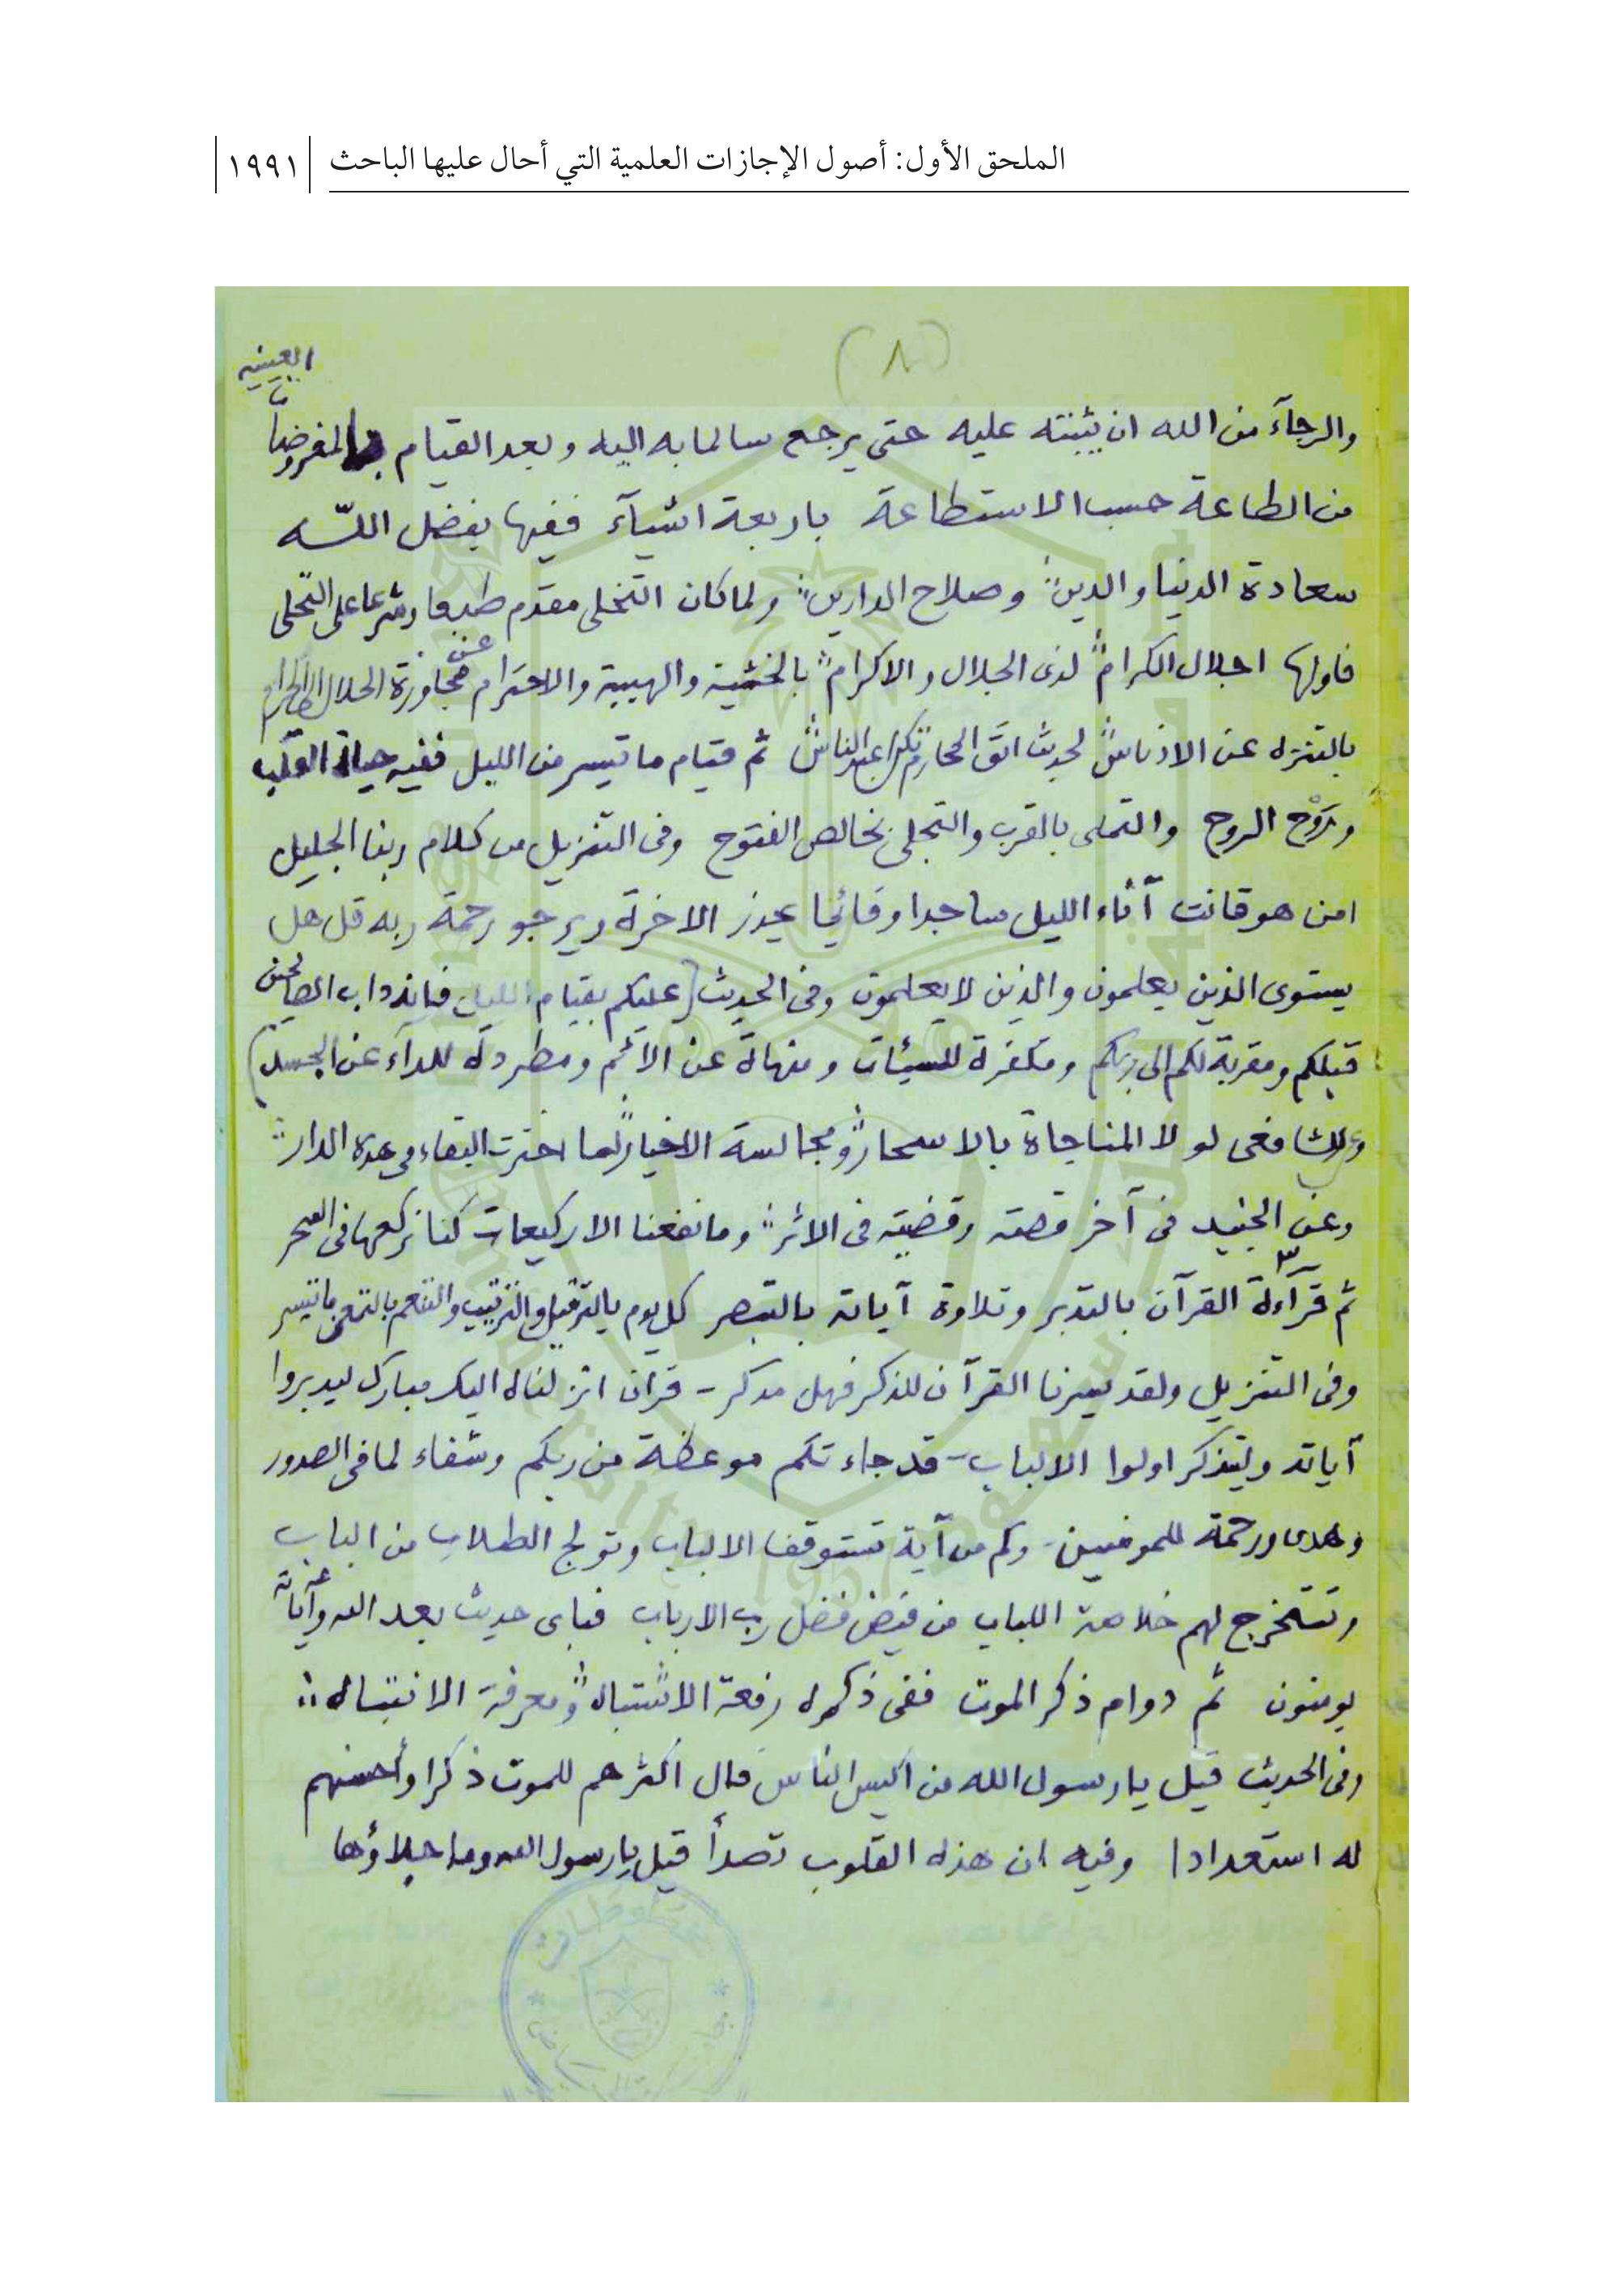 الملحق الأول: أصول الإجازات العلمية التي أحال عليها الباحث ١٩٩١
(٨)
العينيه
والرجآء من الله ان يثبته عليه حتى يرجع سالما به اليه وبعد القيام بالمفروضات
من الطاعة حسب الاستطاعة باربعة اشيآء ففيها بفضل اللّه
سعادة الدنيا والدين وصلاح الدارين ولما كان التخلى مقدم طبعا وشرعا على التحلى
فاولها اجلال الكرام لذى الجلال والاكرام بالخشية والهيبة والاحترام عن مجاوزة الحلال الى الحرام
بالتنزه عن الادناس لحديث اتق المحارم تكن اعبد الناس ثم قيام ما تيسر من الليل ففيه حياة القلب
ورَوْح الروح والتملى بالقرب والتجلى بخالص الفتوح وفى التنزيل من كلام ربنا الجليل
امن هو قانت آناء الليل ساجدا وقائما يحذر الاخرة ويرجو رحمة ربه قل هل
يستوى الذين يعلمون والذين لا يعلمون وفى الحديث (عليكم بقيام الليل فانه داب الصالحين
قبلكم ومقربة لكم الى ربكم ومكفرة للسيئات ومنهاة عن الاثم ومطردة للدآء عن الجسد)
وعن الشافعى لولا المناجاة بالاسحار ومجالسة الاخيار لما اخترت البقاء فى هذه الدار
وعن الجنيد فى آخر قصته وقضيته فى الاثر وما نفعنا الا ركيعات كنا نركعها فى السحر
٣
ثم قرآءة القرآن بالتدبر وتلاوة آياته بالتبصر كل يوم بالترتيل والترتيب والتنعم بالتمعن ما تيسر
وفى التنزيل ولقد يسرنا القرآن للذكر فهل مدكر - قران انزلناه اليك مبارك ليدبروا
آياته وليتذكر اولوا الالباب - قد جاءتكم موعظة من ربكم وشفاء لما فى الصدور
وهدى ورحمة للمومنين - وكم من آية تستوقف الالباب وتولج الطلاب من الباب
وتستخرج لهم خلاصة اللباب من فيض فضل رب الارباب فباى حديث بعد الله وآياته
يومنون ثم دوام ذكر الموت ففى ذكره رفعة الاشتباه ومعرفة الانتباه
وفى الحديث قيل يا رسول الله من اكيس الناس قال اكثرهم للموت ذكرا وأحسنهم
له استعدادا وفيه ان هذه القلوب تصدأ قيل يا رسول الله وما جلاؤها